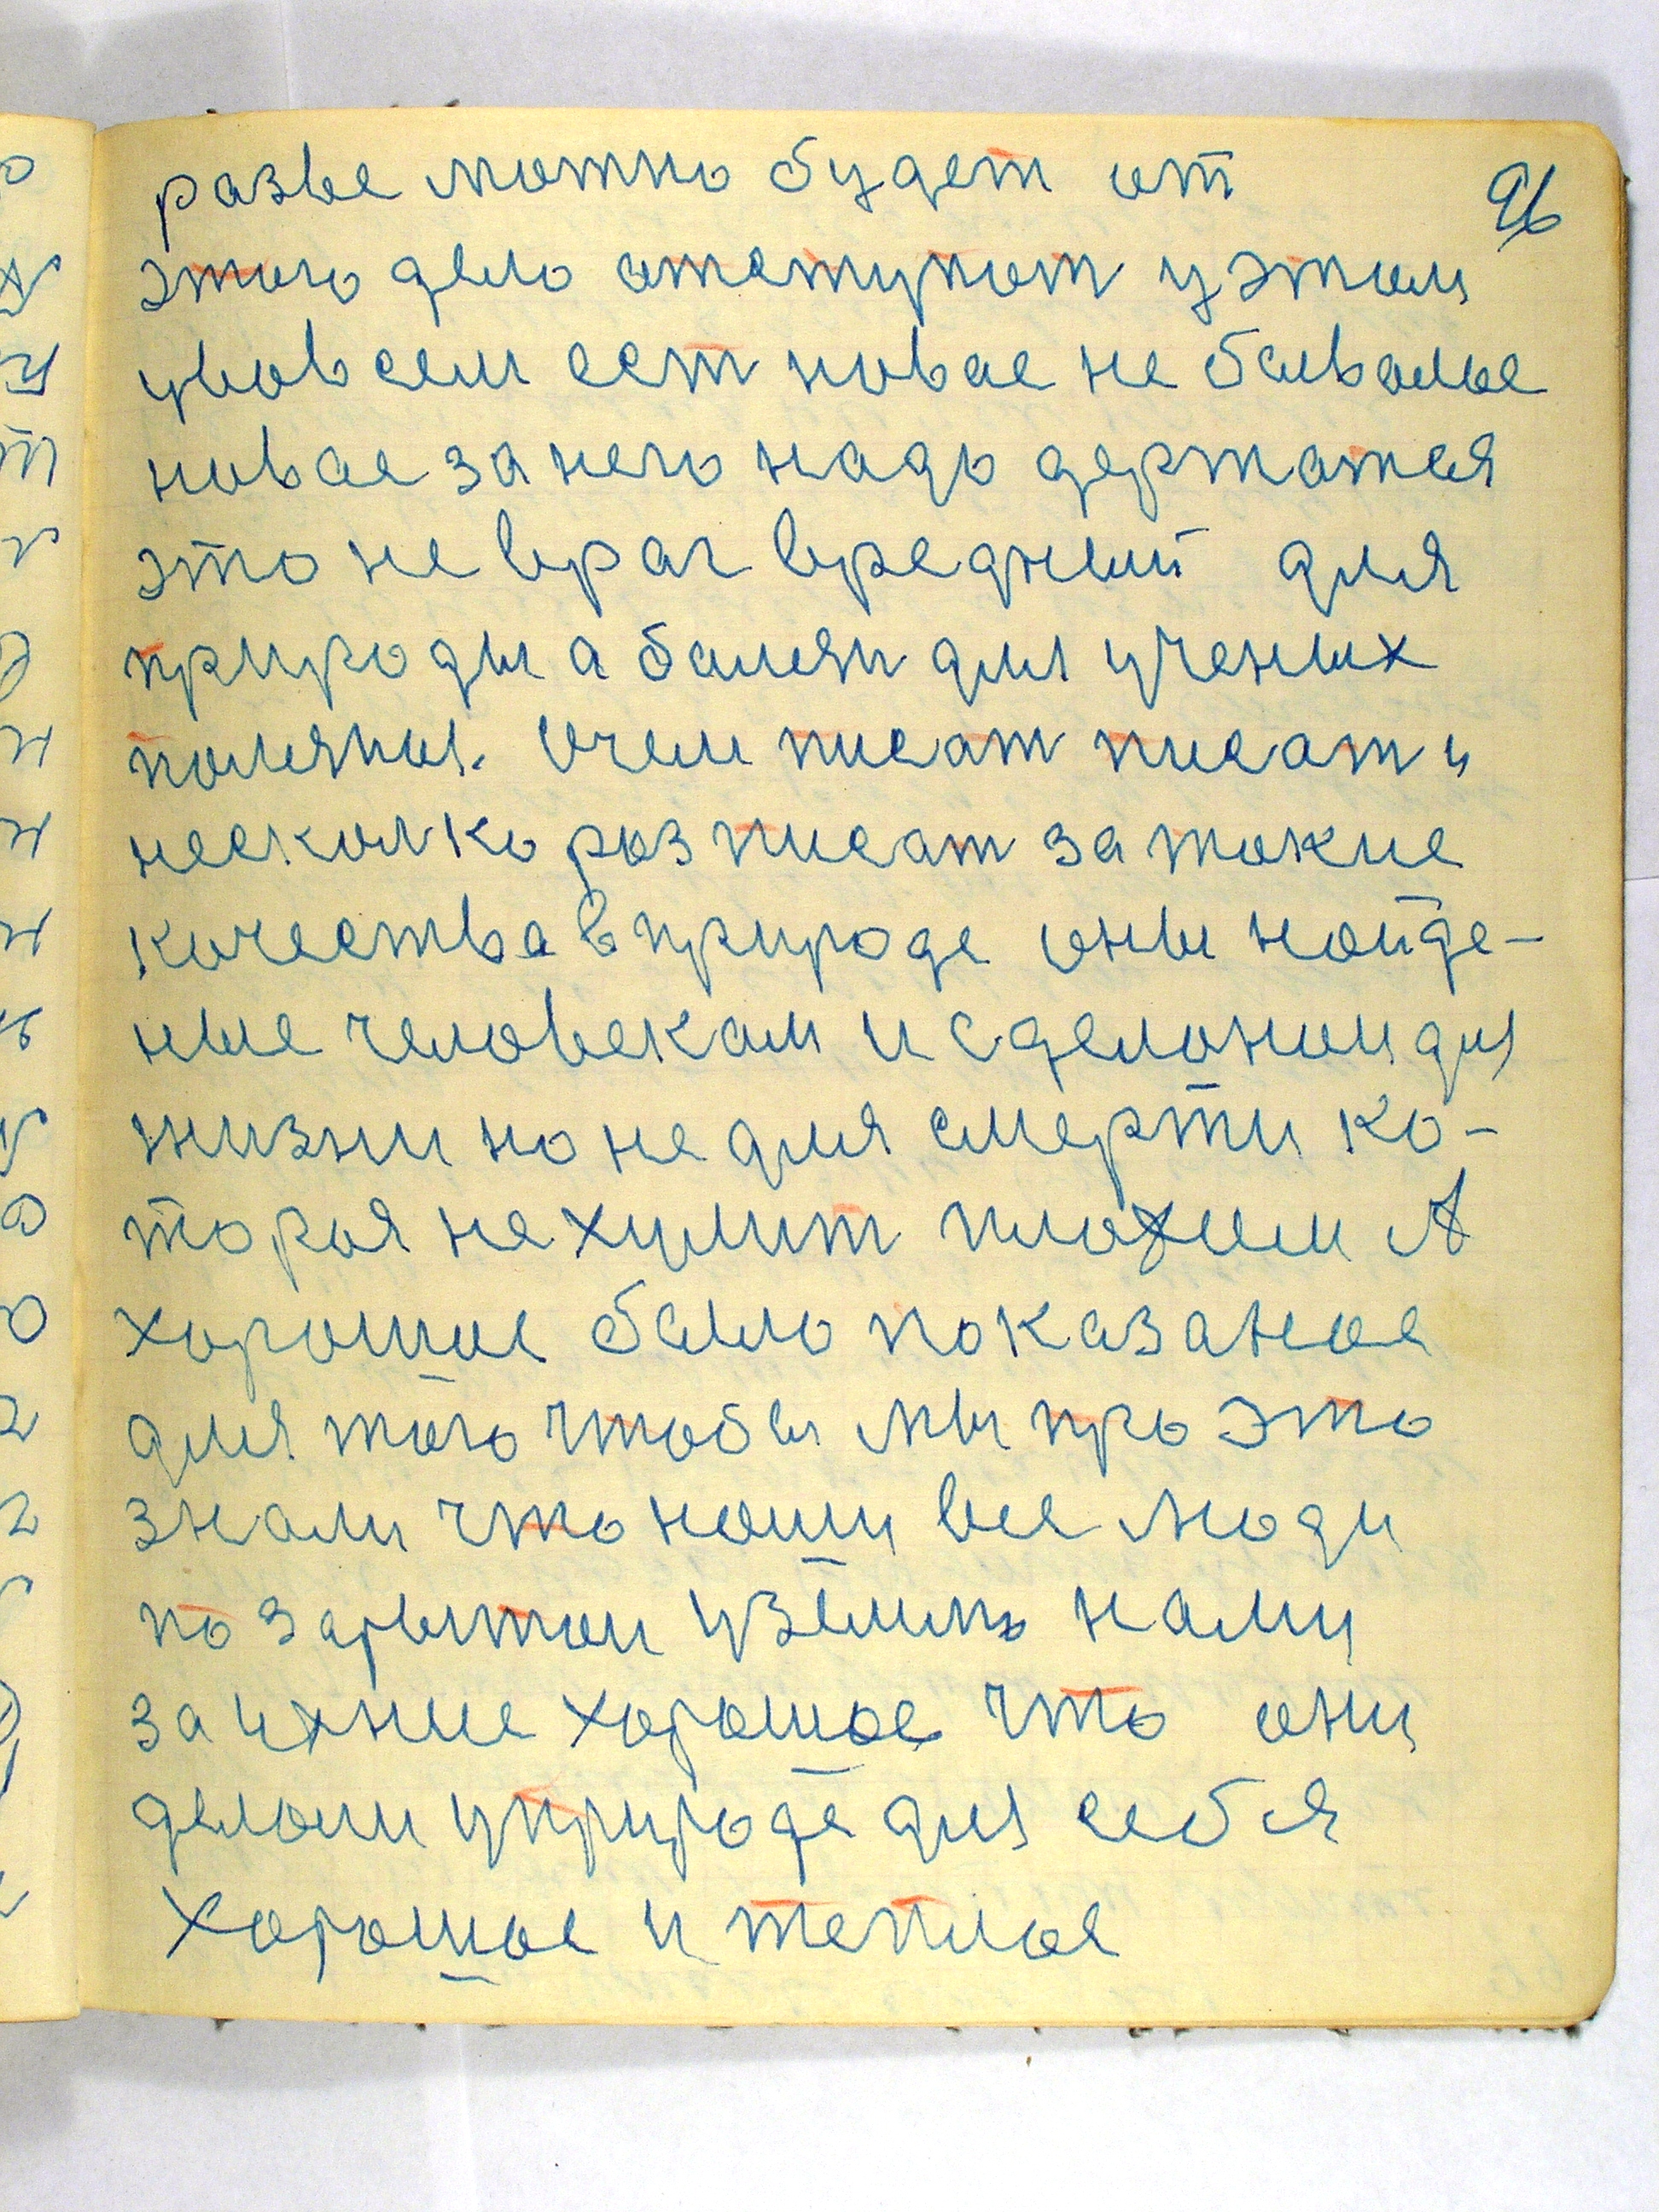 96
разве можно будет от
этого дело отступит у этом
увовсем ест новае не бывалые
новае за него надо держатся
это не враг вредный для
природы а более для ученых
Очем писат писат и
несколко раз писат за такие
качества в природе оны найде-
ные человекам и сделаным для
жизни но не для смерти ко-
торая не хулит плохим А
хорошае было показаное
для того чтобы мы про это
знали что наши все люди
по зарытои узёмлю нами
за ихние хорошое что они
делали уприроде для себя
Хорошое и теплое